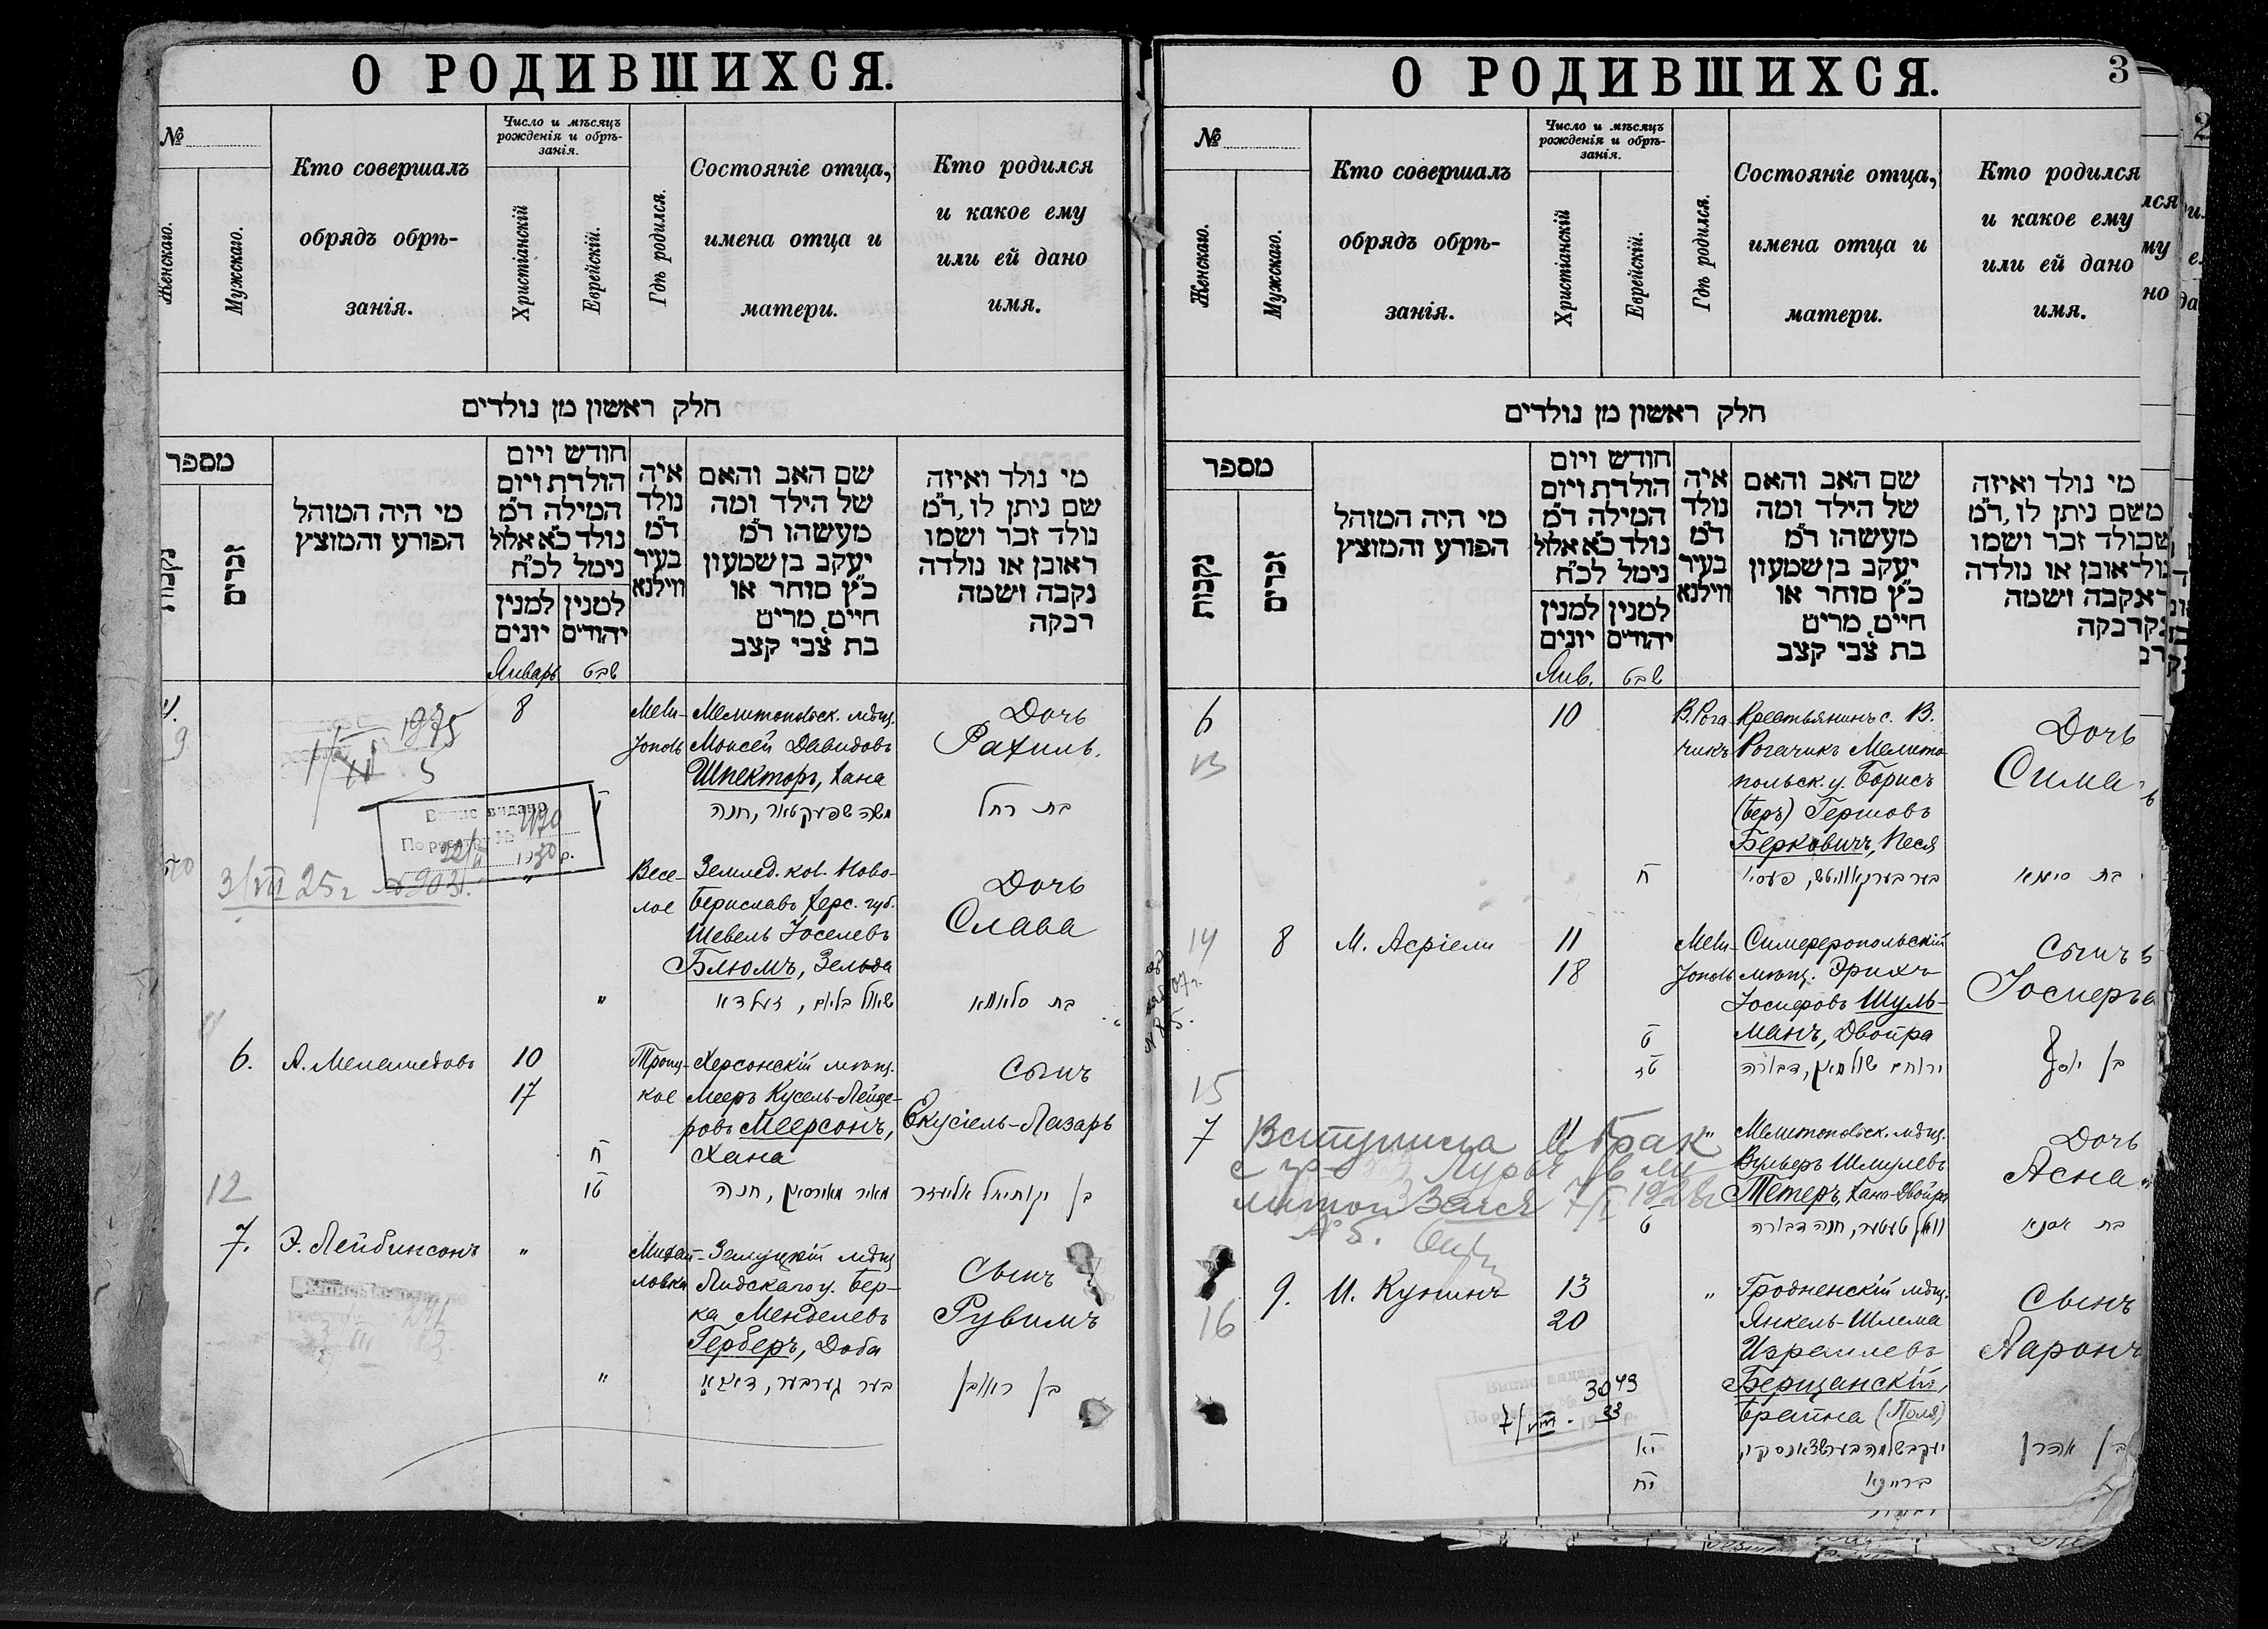 О РОДИВШИХСЯ.
№
Женскаго.
Мужскаго.
Кто совершалъ
обрядъ обрѣ-
занія.
Число и мѣсяцъ
рожденія и обрѣ-
занія.
Христіанскій
Еврейскій.
Гдѣ родился.
Состояніе отца,
имена отца и
матери.
Кто родился
и какое ему
или ей дано
имя.
חלק ראשון מן נולדים
מספר
נקבות
זכרים
מי היה המוהל
הפורע והמוצץ
חודש ויום
הולדת ויום
המילה ד״מ
נולד כ״א אלול
נימל לכ״ח
למנין יונים
למנין יהודים
איה
נולד
ד״מ
בעיר
ווילנא
שם האב והאם
של הילד ומה
מעשהו ד״מ
יעקב בן שמעון
כ״ץ סוחר או
חיים, מרים
בת צבי קצב
מי נולד ואיזה
שם ניתן לו, ד״מ
נולד זכר ושמו
ראובן או נולדה
נקבה ושמה
רבקה
Январь שבט
9
1975
8
Мели-
тополь
Мелитопольск. мѣщ.
Моисей Давидовъ
Шпекторъ, Хана
משה שפעקטאר, חנה
Дочь
Рахиль.
בת רחל
Випис видано
По реєстру №
3/VII 25 г. №903.
"
Весе-
лое
Землед. кол. Ново-
Бериславъ Херс. губ.
Шевель Іоселевъ
Блюмъ, Зельда
"
Дочь
Слава
בת
6.
А. Меламедовъ
10
17
Троиц-
кое
Херсонскій мѣщ.
Мееръ Кусель-Лейзе-
ровъ Меерсонъ,
Хана
ח
טו
מאיר מאירסאן, חנה
Сынъ
Екусіель-Лазарь
בן יקותיאל אליעזר
12
7.
Э. Лейбинсонъ
"
Михай-
ловка
мѣщ
Лидскаго у. Бер-
ка Менделевъ
Герберъ, Доба
"
בער גערבער,
Сынъ
Рувимъ
בן ראובן
О РОДИВШИХСЯ.
3
№
Женскаго.
Мужскаго.
Кто совершалъ
обрядъ обрѣ-
занія.
Число и мѣсяцъ
рожденія и обрѣ-
занія.
Христіанскій
Еврейскій.
Гдѣ родился.
Состояніе отца,
имена отца и
матери.
Кто родился
и какое ему
или ей дано
имя.
חלק ראשון מן נולדים
מספר
נקבות
זכרים
מי היה המוהל
הפורע והמוצץ
חודש ויום
הולדת ויום
המילה ד״מ
נולד כ״א אלול
נימל לכ״ח
למנין יונים
למנין יהודים
איה
נולד
ד״מ
בעיר
ווילנא
שם האב והאם
של הילד ומה
מעשהו ד״מ
יעקב בן שמעון
כ״ץ סוחר או
חיים, מרים
בת צבי קצב
מי נולד ואיזה
Янв. שבט
6
13
10
В. Рога-
чикъ
Крестьянинъ с. В.
Рогачикъ Мелито-
польск. у. Борисъ
(Беръ) Гершовъ
Берковичъ, Песя
ח
בער בערקאוויטש, פעסיא
Дочь
Сима
בת סימא
14
8
М. Асріели
11
18
Мели-
тополь
Симферопольскій
мѣщ. Эрихъ
Іосифовъ Шуль-
манъ, Двойра
ט
טז
ירוחם שולמאן, דבורה
Сынъ
Іосифъ
בן יוסף
15
7
Вступила в брак
11
"
Мелитопольск. мѣщ.
Вульфъ Шмулевъ
Тетеръ, Хана-Двойра
ט
וואלף טעטער, חנה דבורה
Дочь
Асна
בת אסנא
№ 5.
9.
16
И. Кунинъ
13
20
"
Гродненскій мѣщ.
Янкель-Шлема
Израилевъ
Берщанскій,
Брайна (Поля)
3049
7/VIII. 33
יא
יח
יעקב שלמה בערשצאנסקי,
בריינא
Сынъ
Ааронъ
בן אהרן